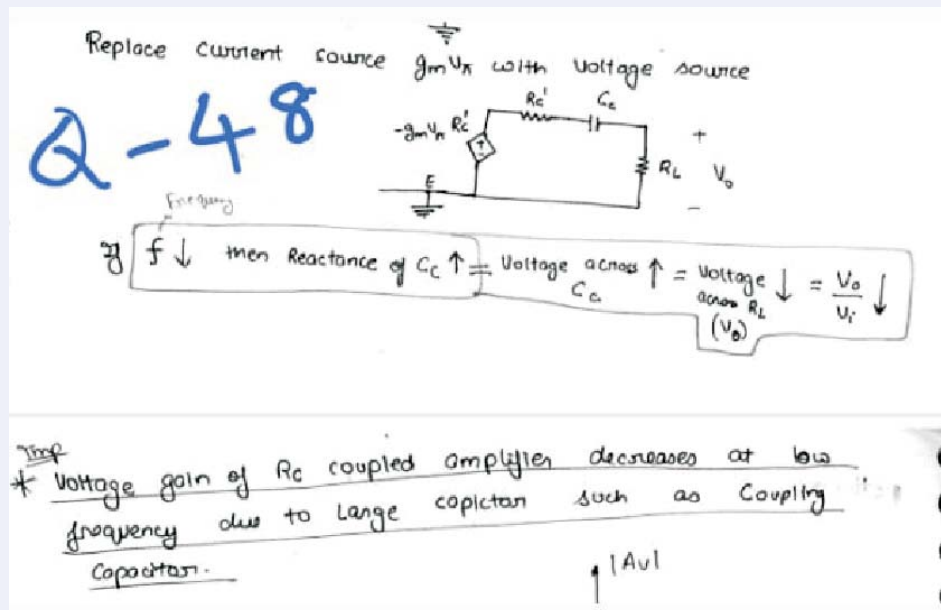 Replace current source gmVπ with voltage source
Q-48
Rc' Cc
-gmVπ Rc'
+
RL Vo
-
E
Frequency
If f ↓ then Reactance of Cc ↑ = Voltage across Cc ↑ = Voltage across RL (Vo) ↓ = Vo/Vi ↓
Imp
* Voltage gain of Rc coupled amplifier decreases at low
frequency due to Large capictor such as Coupling
Capacitor.
|Av|